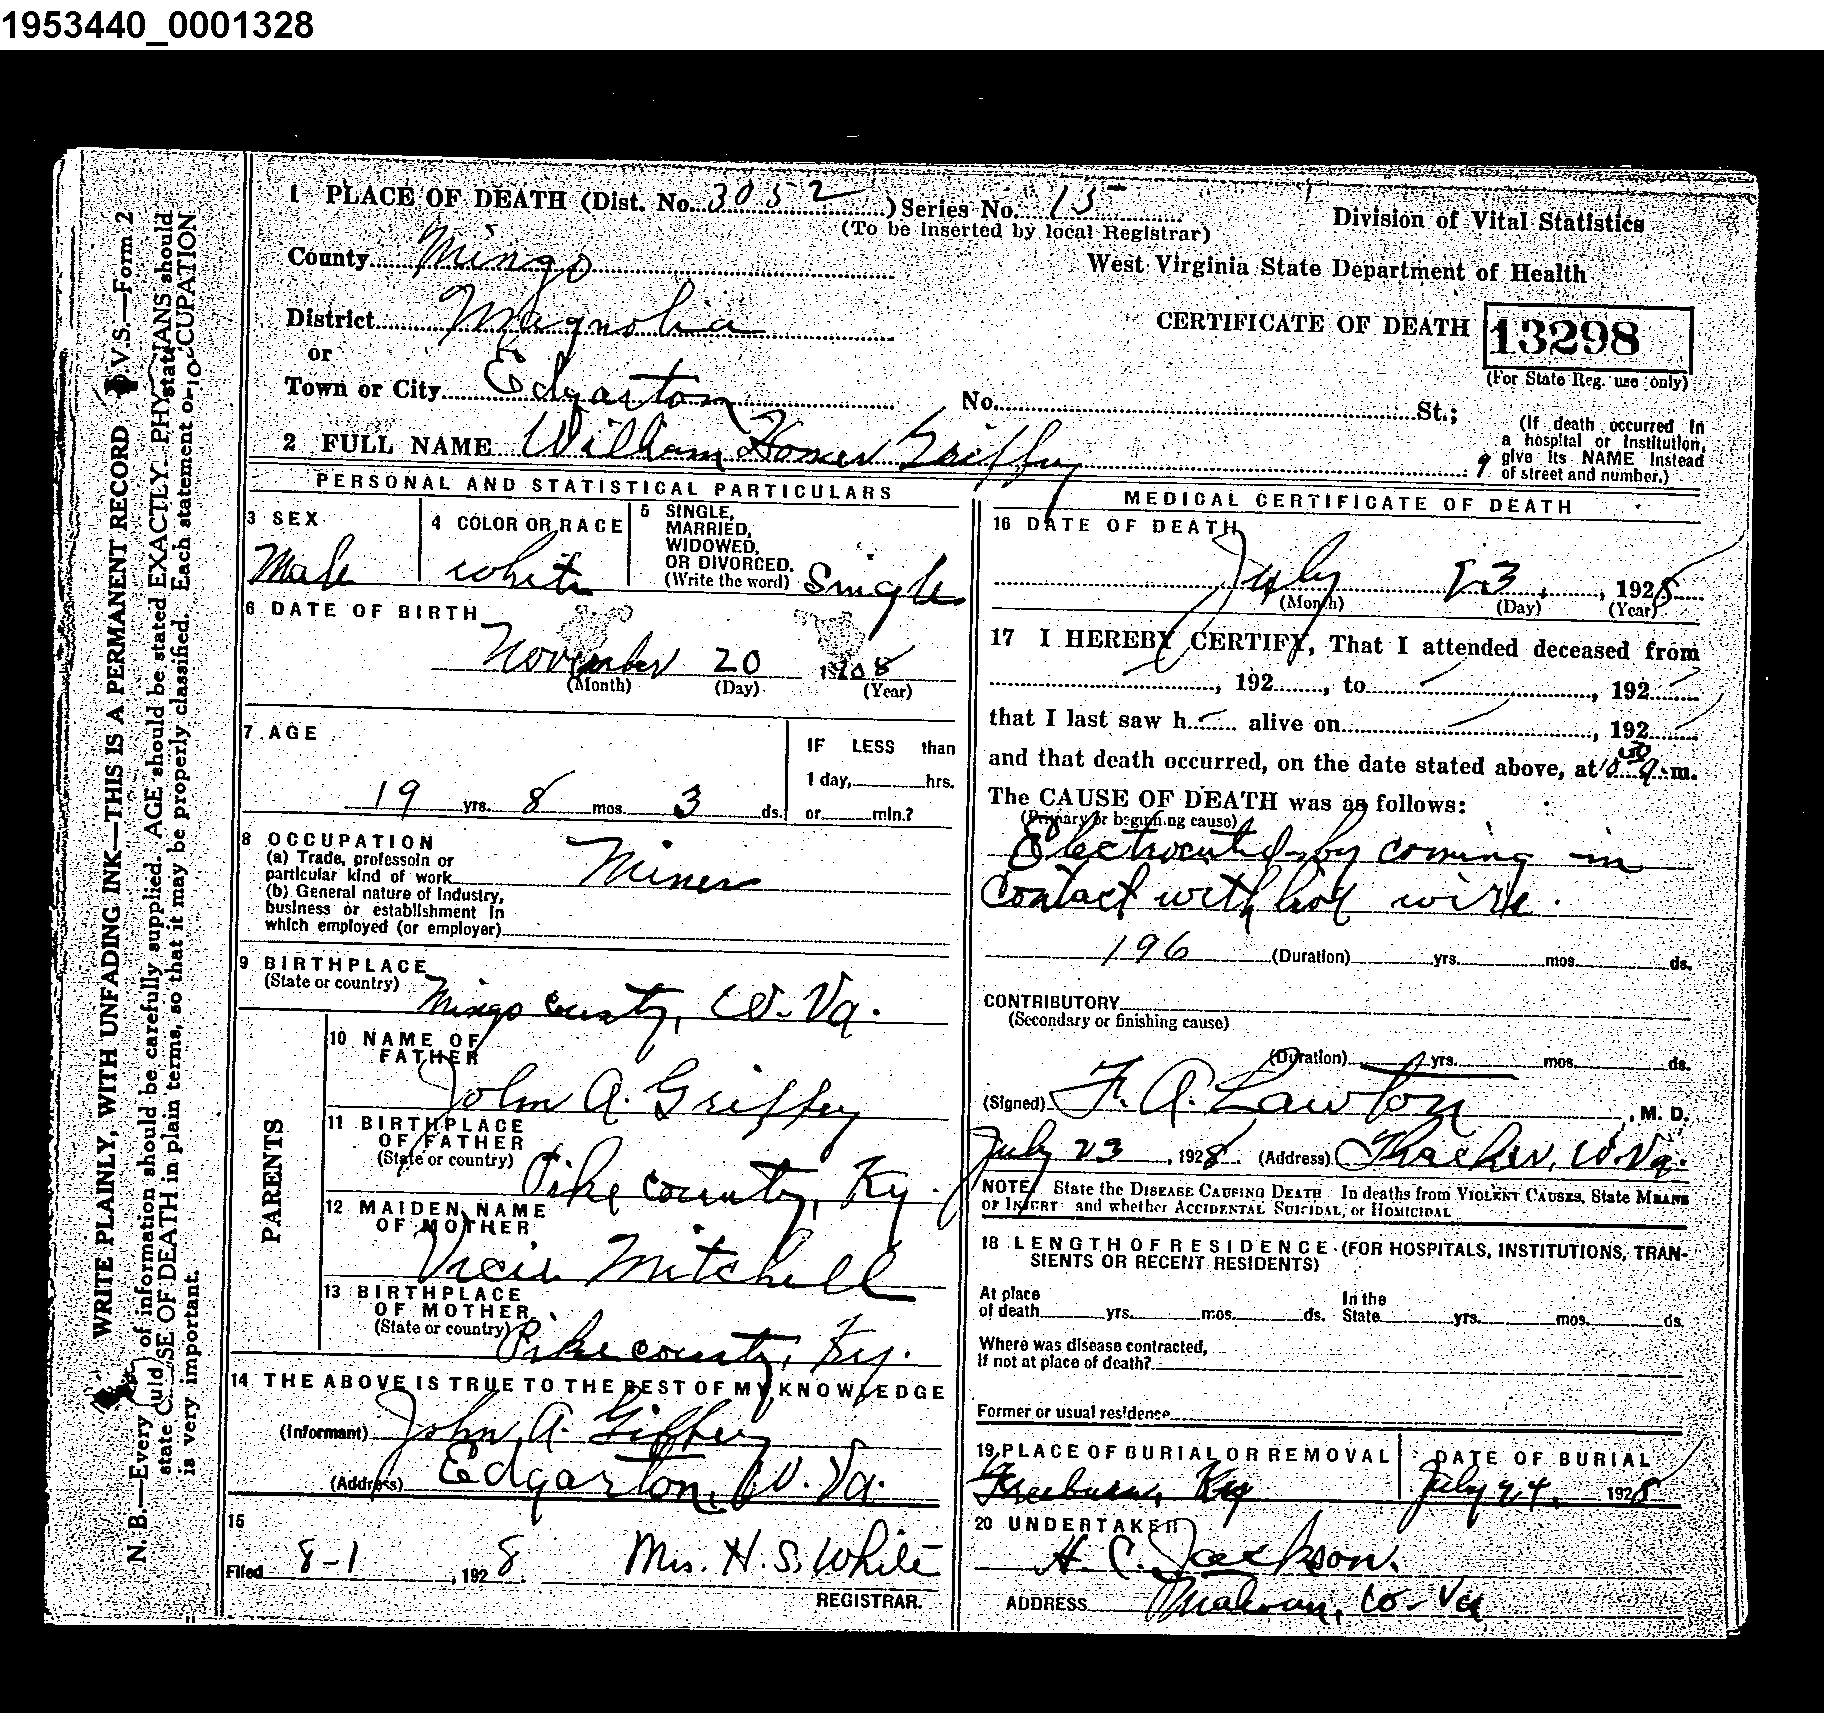 1953440_0001328
1 PLACE OF DEATH (Dist. No. 3052) Series No. 15
(To be inserted by local Registrar)
Division of Vital Statistics
County Mingo
West Virginia State Department of Health
District Magnolia
CERTIFICATE OF DEATH 13298
or
(For State Reg. use only)
Town or City Edgarton
No. St.;
(If death occurred in
a hospital or institution,
give its NAME instead
of street and number.)
2 FULL NAME William Homer Griffey
PERSONAL AND STATISTICAL PARTICULARS
3 SEX
Male
4 COLOR OR RACE
white
5 SINGLE,
MARRIED,
WIDOWED,
OR DIVORCED.
(Write the word) Single
6 DATE OF BIRTH
November 20 1908
(Month) (Day) (Year)
7 AGE
19 yrs. 8 mos. 3 ds.
IF LESS than
1 day, hrs.
or min.?
8 OCCUPATION
(a) Trade, professoin or
particular kind of work Miner
(b) General nature of Industry,
business or establishment in
which employed (or employer)
9 BIRTHPLACE
(State or country) Mingo County, W. Va.
PARENTS
10 NAME OF
FATHER
John A. Griffey
11 BIRTHPLACE
OF FATHER
(State or country) Pike County, Ky.
12 MAIDEN NAME
OF MOTHER
Vicie Mitchell
13 BIRTHPLACE
OF MOTHER
(State or country) Pike County, Ky.
14 THE ABOVE IS TRUE TO THE BEST OF MY KNOWLEDGE
(Informant) John A. Giffey
(Address) Edgarton, W. Va.
15
Filed 8-1, 1928. Mrs. H. S. White
REGISTRAR.
MEDICAL CERTIFICATE OF DEATH
16 DATE OF DEATH
July 23, 1928
(Month) (Day) (Year)
17 I HEREBY CERTIFY, That I attended deceased from
, 192 , to , 192
that I last saw h alive on , 192
and that death occurred, on the date stated above, at 10 30 a.m.
The CAUSE OF DEATH was as follows:
(Primary or beginning cause)
Electrocuted by coming in
contact with live wire.
196 (Duration) yrs. mos. ds.
CONTRIBUTORY
(Secondary or finishing cause)
(Duration) yrs. mos. ds.
(Signed) F. A. Lawton, M. D.
July 23, 1928. (Address) Thacker, W. Va.
NOTE State the DISEASE CAUSING DEATH In deaths from VIOLENT CAUSES, State MEANS
OF INJURY and whether ACCIDENTAL SUICIDAL, or HOMICIDAL
18 LENGTH OF RESIDENCE (FOR HOSPITALS, INSTITUTIONS, TRAN-
SIENTS OR RECENT RESIDENTS)
At place
of death yrs. mos. ds.
In the
State yrs. mos. ds.
Where was disease contracted,
If not at place of death?
Former or usual residence
19 PLACE OF BURIAL OR REMOVAL
Freeburn, Ky
DATE OF BURIAL
July 24, 1928
20 UNDERTAKER
H. C. Jackson.
ADDRESS Matewan, W. Va
WRITE PLAINLY, WITH UNFADING INK—THIS IS A PERMANENT RECORD V.S.—Form 2
N. B.—Every of information should be carefully supplied. AGE should be stated EXACTLY. PHYSICIANS should
state CAUSE OF DEATH in plain terms, so that it may be properly classified. Each statement of OCCUPATION
is very important.